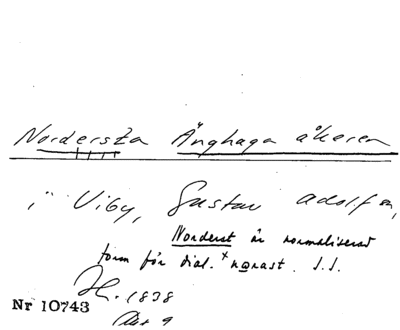 Nordersta Änghaga åkeren
i Viby, Gustav Adolf sn,
Norderst är normaliserad
form för dial. ˣnørast. J.J.
1838
Nr 10743
Akt 9